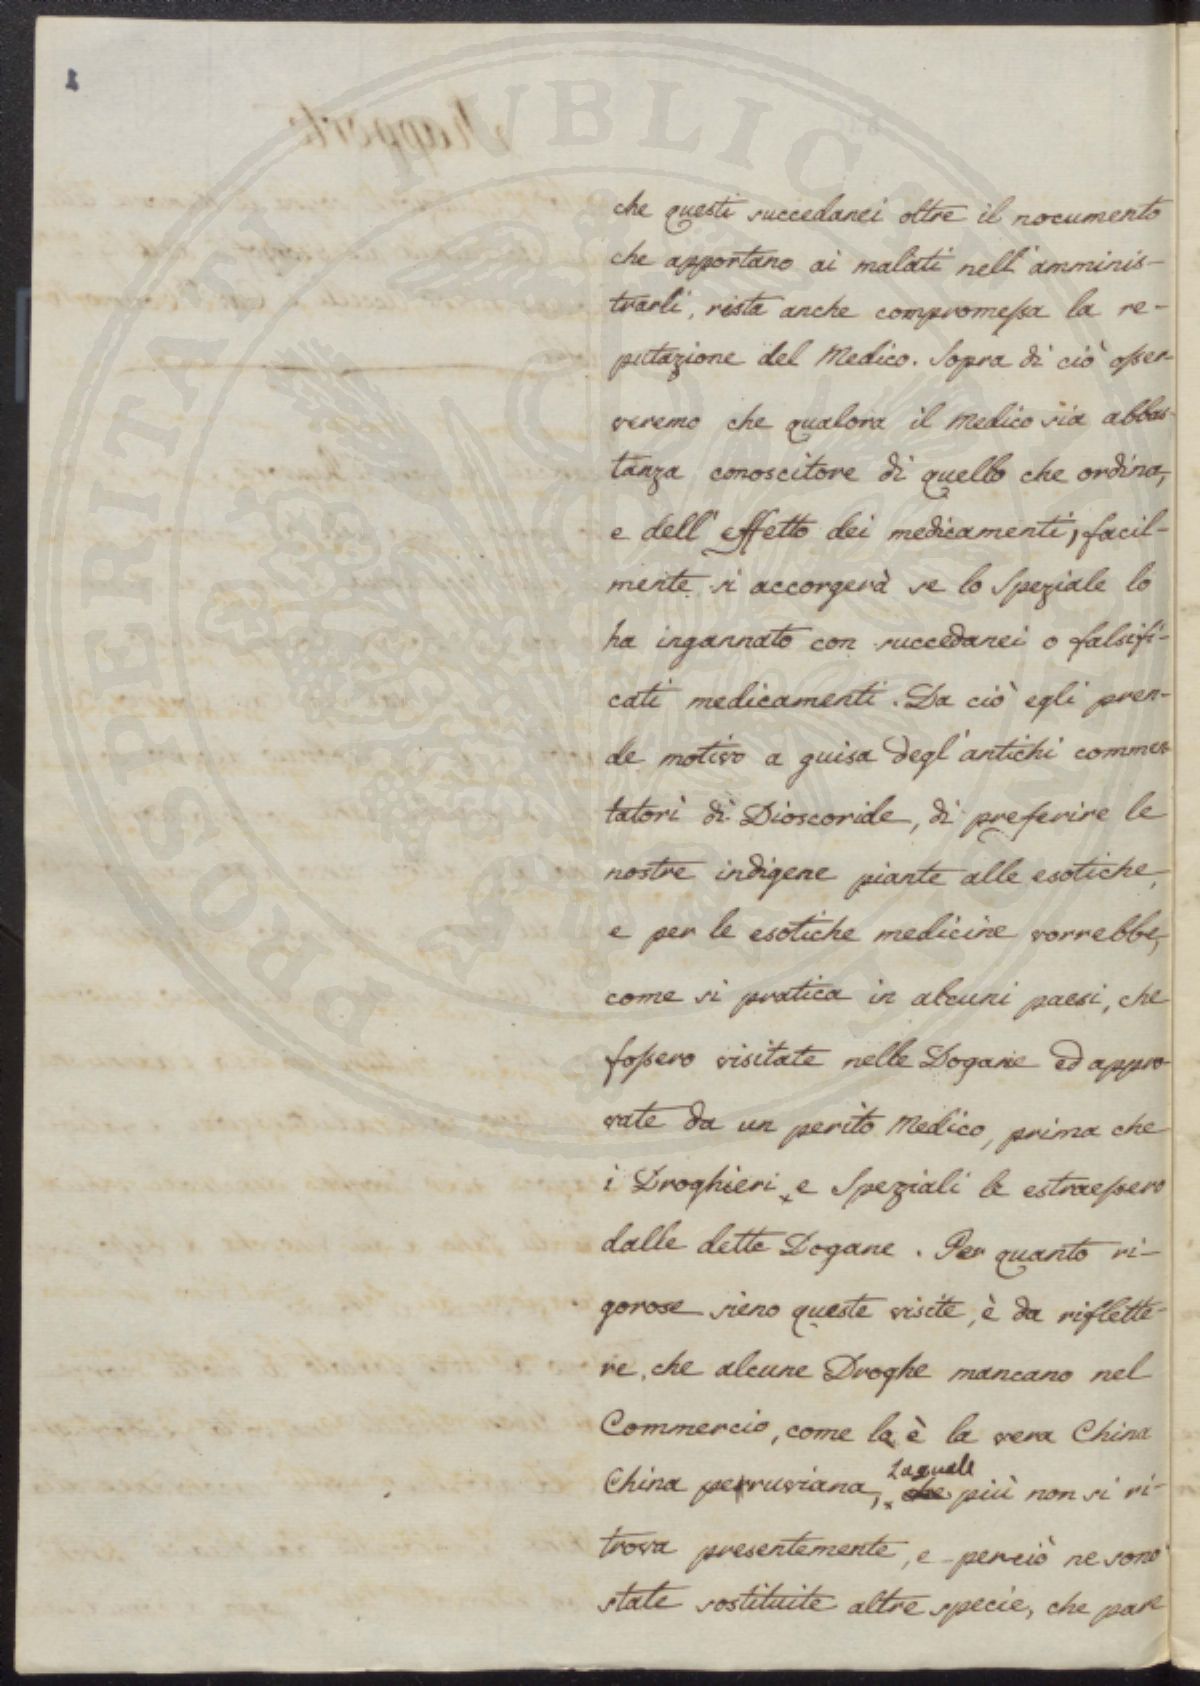 1
che questi succedanei oltre il nocumento
che apportano ai malati nell'amminis-
trarli, resta anche compromessa la re-
putazione del Medico. Sopra di ciò osser-
veremo che qualora il Medico sia abbas-
tanza conoscitore di quello che ordina,
e dell'effetto dei medicamenti, facil-
mente si accorgerà se lo Speziale lo
ha ingannato con succedanei o falsifi-
cati medicamenti. Da ciò egli pren-
de motivo a guisa degl'antichi commen-
tatori di Dioscoride, di preferire le
nostre indigene piante alle esotiche,
e per le esotiche medicine vorrebbe,
come si pratica in alcuni paesi, che
fossero visitate nelle Dogane ed appro-
vate da un perito Medico, prima che
i Droghieri, e Speziali le estraessero
dalle dette Dogane. Per quanto ri-
gorose sieno queste visite, è da riflette-
re, che alcune Droghe mancano nel
Commercio, come la è la vera China
laquale
China perruviana, che più non si ri-
trova presentemente, e perciò ne sono
state sostituite altre specie, che pare
PUBLICAE
PROSPERITATI